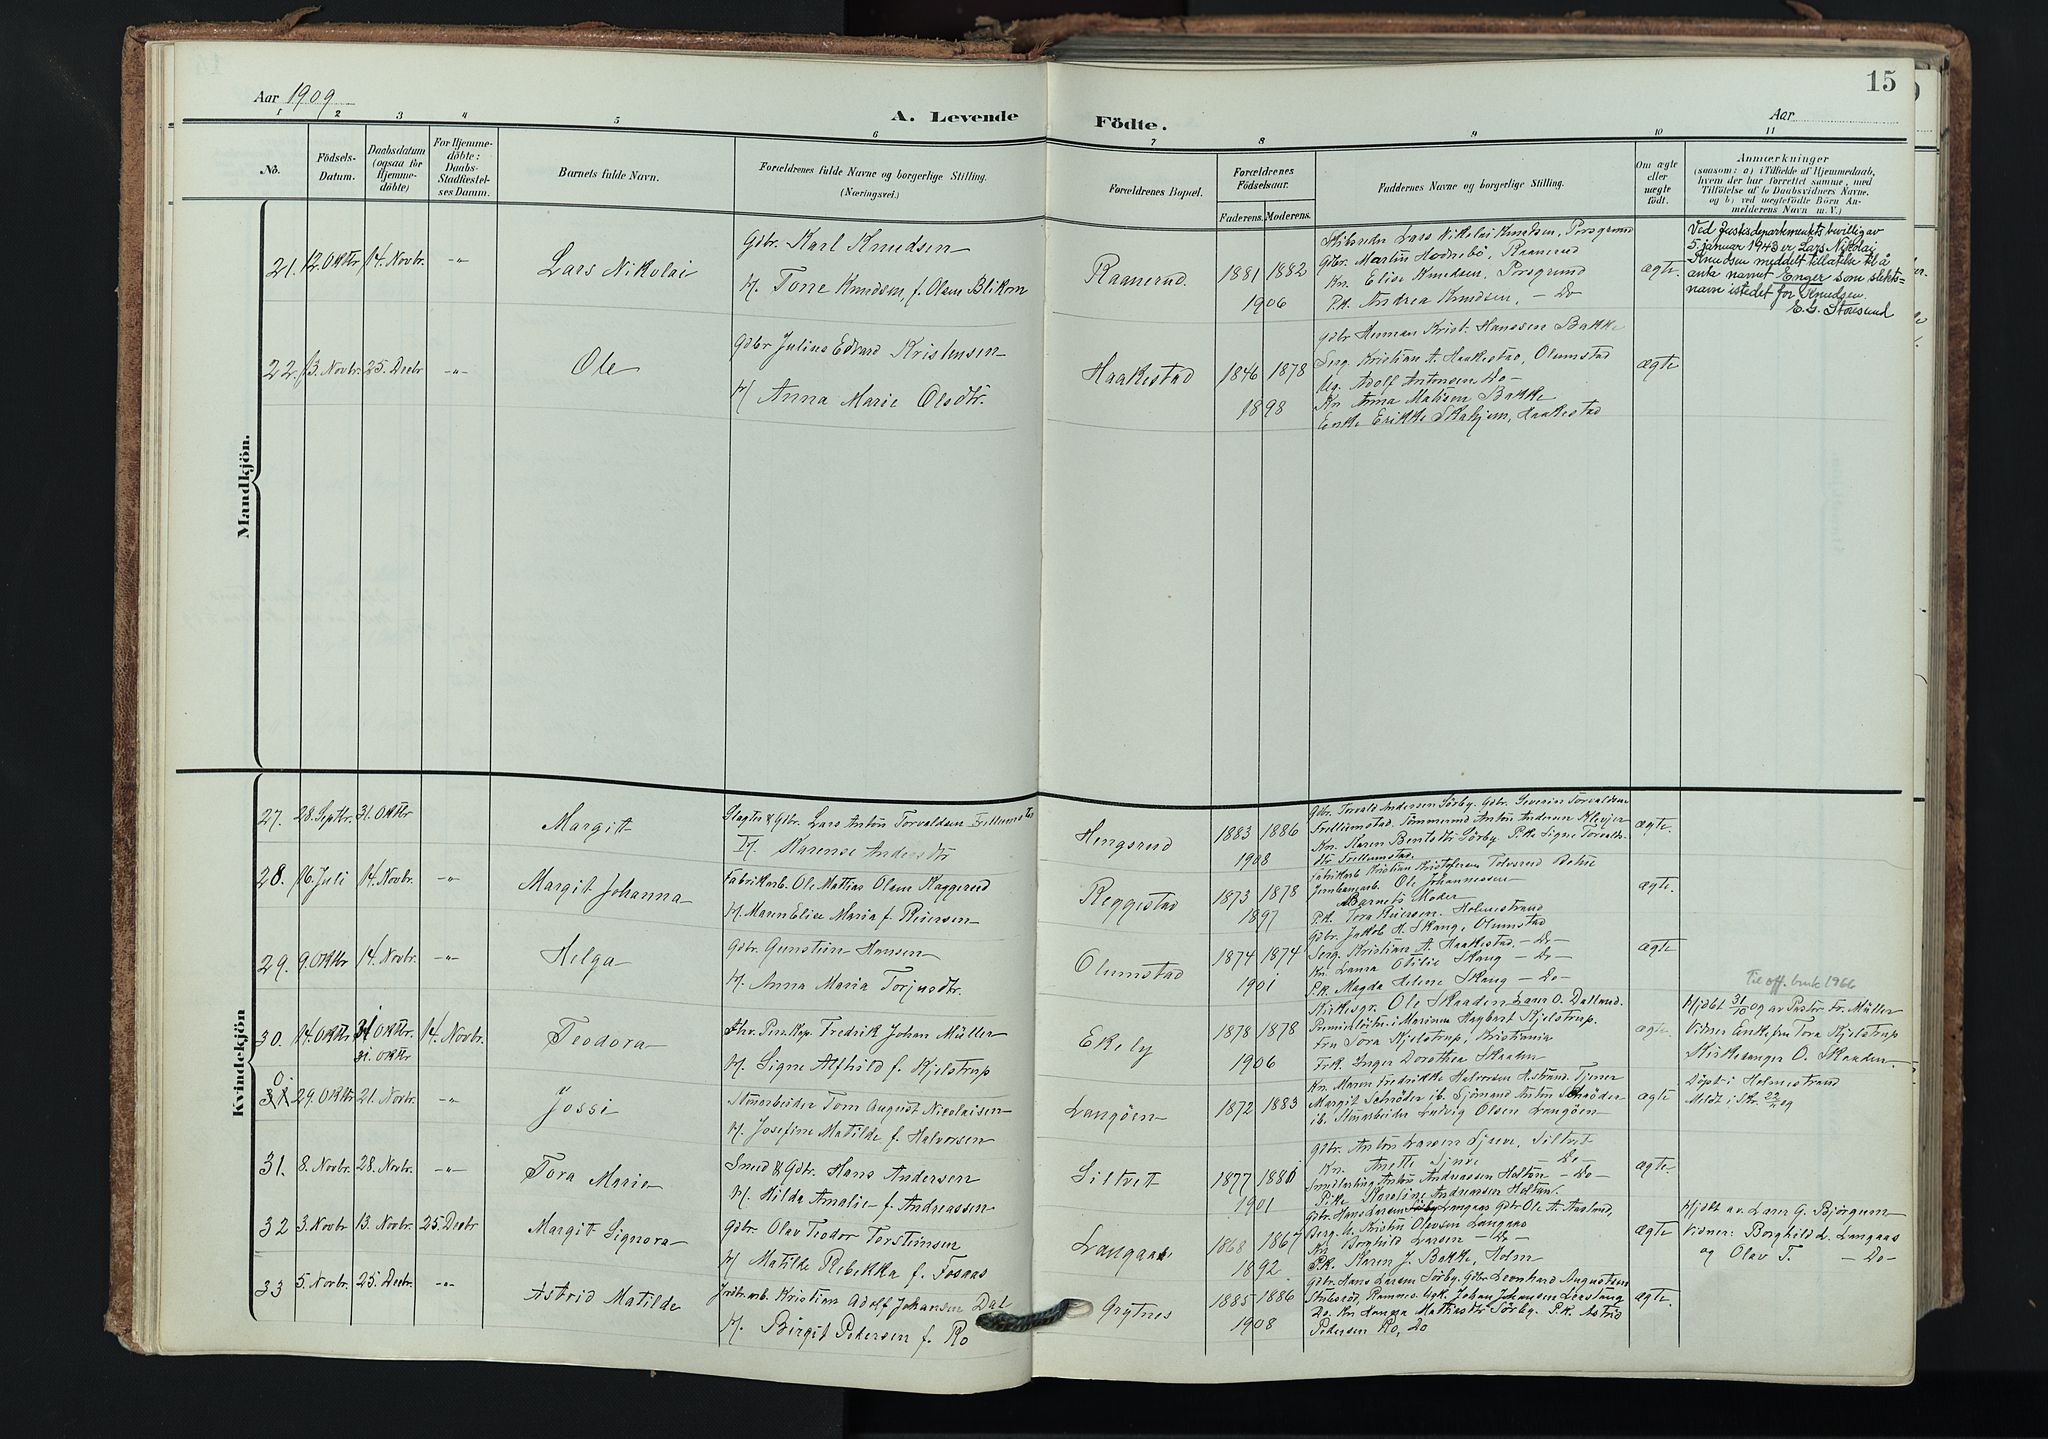 15
Aar 1909
A. Levende
Födte.
Aar
1 2 3 4 5 6 7 8 9 10 11
No.
Födsels-
Datum.
Daabsdatum
(ogsaa for
Hjemme-
döbte)
For Hjemme-
döbte:
Daabs-
Stadfæstel-
ses Datum.
Barnets fulde Navn.
Forældrenes fulde Navne og borgerlige Stilling.
(Næringsvei.)
Forældrenes Bopæl.
Forældrenes
Födselsaar.
Faderens. Moderens.
Faddernes Navne og borgerlige Stilling.
Om ægte
eller
uægte
födt.
Anmærkninger
(saasom: a) i Tilfælde af Hjemmedaab,
hvem der har forrettet samme, med
Tilföielse af to Daabsvidners Navne.
og b) ved uegtefödte Börn An-
melderens Navn m. V.)
Mandkjön.
21. 12. Oktbr 14. Novbr. -"- Lars Nikolai
Gdbr. Karl Knudsen
H. Tone Knudsen, f. Olsen
Raanerud 1881 1882
1906
Skibsreder Lars Nikolai Knudsen, Porsgrund
Gdbr. Martin Hodnebö, Raanerud
Kn. Elise Knudsen, Porsgrund
P.k. Andrea Knudsen, – Do
ægte
Ved Justisdepartements bevilling av
5. januar 1943 er Lars Nikolai
Knudsen meddelt tillatelse til å
anta navnet Enger som slekts=
navn istedet for Knudsen.
E. G. Storesund
22. 13. Novbr. 25. Decbr -"- Ole
Gdbr Julius Edvard Kristensen
H/ Anna Marie Olsdtr.
Haakestad 1846 1878
1898
Gdbr Herman Krist. Hanssen Bakke
Serg. Kristian A. Haakestad, Olumstad
Ug. Adolf Antonsen Do –
Kn Anna Matisen Bakke
Enke Erikke Skahjem, Haakestad
ægte
Kvindekjön
27. 28. Septbr. 31. Oktbr Margitt
Slagter & Gdbr. Lars Anton Torvaldsen
H. Karense Andersdtr
Hengsrud 1883 1886
1908
Gdbr. Torvald Andersen Sörby. Gdbr. Severin Torvaldsen
Frellumstad. Tömmermd Anton Andersen Klevjer
Kn. Karen Bentsdtr Sörby. P.k. Signe Torvalds-
dtr Frellumstad.
ægte.
28. 16. Juli 14. Novbr. -"- Margit Johanna
Fabrikarb. Ole Mattias Olsen
H. Maren Elise Maria f. Reiersen
Reggestad 1873 1878
1897
Fabrikarb Kristian Kristofersen Tolvsrud Botne
Jernbanearb. Ole Johannessen
Barnets Moder
P.k. Tora Reiersen. Holmestrand
ægte
29. 9. Oktbr 14. Novbr. -"- Helga
Gdbr. Gunstein Hansen
H. Anna Maria Torjusdtr.
Olumstad 1874 1874
1901
Gdbr. Jakob H. Skaug, Olumstad
Serg. Kristian A. Haakestad – Do –
Kn. Laura Otilie Skaug – Do –
P.k. Magda Helene Skaug – Do –
ægte
30. 14. Oktbr 31 Oktbr. 14. Novbr. Teodora
31. Oktbr
Fhv. Pers. Kap. Fredrik Johan Müller
H. Signe Alfhild f. Kjelstrup
Ekely 1878 1878
1906
Kirkesgr. Ole Skaaden Lærer O. Dalland.
Premierlöitn. i Marinen Hagbart Kjelstrup.
Fru Tora Kjelstrup, Kristiania
Frk. Inger Dorothea Skaaden
ægte.
Til off. bruk 1966
Hjdbt 31/10 09 av Pastor Fr. Müller
Vidner Enkefru Tora Kjelstrup
Kirkesanger O. Skaaden.
0
31 29. Oktbr 21. Novbr. -"- Jossi
Stenarbeider Tom August Nicolaisen
H. Josefine Matilde f. Halvorsen
Langöen 1872 1883
Kn. Maren Fredrikke Halvorsen H.strand. Tjener
Margit Schröder ib. Sjömand Anton Schröder
ib. Stenarbeider Ludvig Olsen Langöen
ægte
Döpt i Holmestrand
Meldt i Skr. 22/11 09
31. 8. Novbr. 28. Novbr. -"- Tora Marie
Smed & Gdbr. Hans Andersen
H. Hilda Amalie f. Andreassen
Siltvet 1877 1881
1901
Gdbr. Anton Larsen Sjue, Siltvet
Kn. Anette Sjue – Do –
Smedlærling Anton Andreassen Holtan – Do –
Pike Karoline Andreassen Holtan.
ægte.
32 3. Novbr 13. Novbr. 25. Decbr Margit Signora
Gdbr. Olav Teodor Torsteinsen
H/ Matilde Rebekka f. Fosaas
Langaas 1868 1867
1892
Gdbr. Hans Larsen Langaas Gdbr Ole A. Aasland,
Berg. U. Kristen Olavsen Langaas
Kn Borghild Larsen – Do –
P.k. Karen J. Bakke, Holm
ægte
Hjdbt av. Lærer G. Björgum
Vidner: Borghild L. Langaas
og Olav T. – Do –
33 5. Novbr. 25. Decbr. -"- Astrid Matilde
Jordbr.arb. Kristian Adolf Johansen Dal
H. Birgit Pedersen f. Ro
Grytnes 1885 1886
1908
Gdbr. Hans Larsen Sörby. Gdbr Leonhard Augustsen
Stubsröd, Ramnes. Ugk. Johan Johansen Lerstang
Do. Kn Hanna Mathisdtr Sörby. P.k. Astrid
Pedersen Ro, Do
ægte.